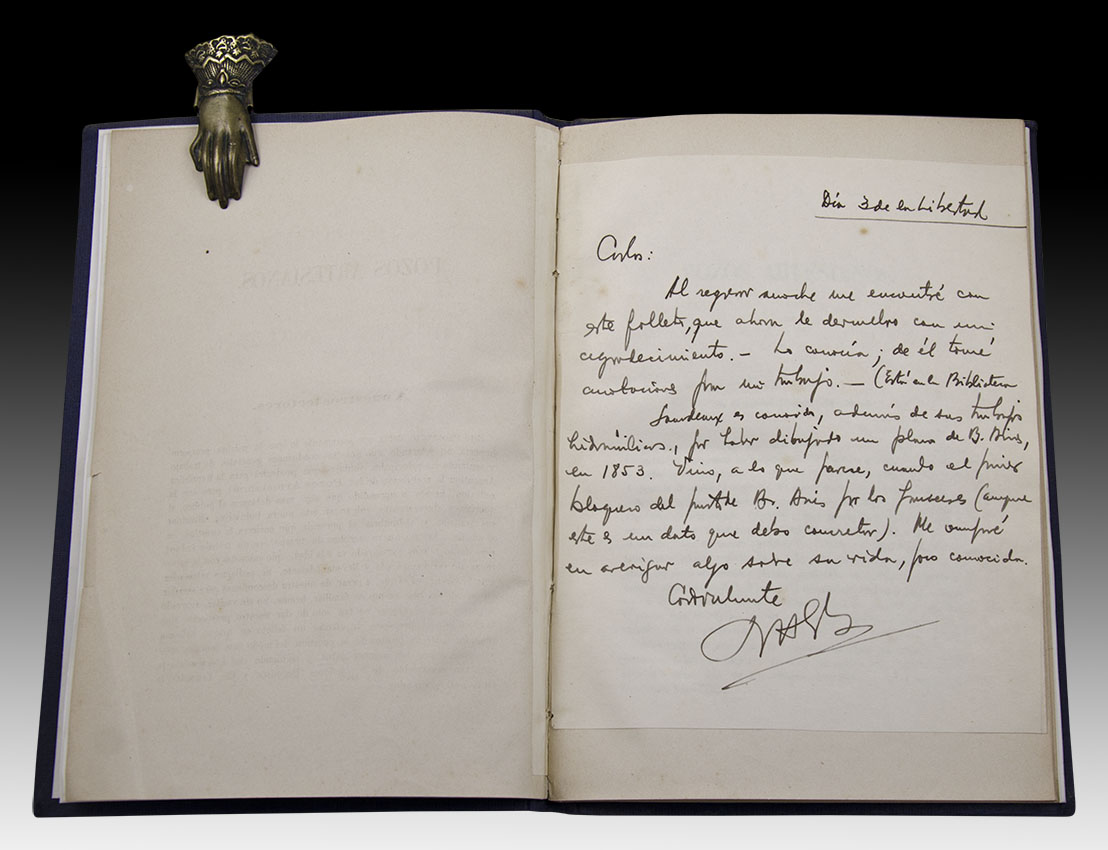 POZOS ARTESIANOS
Día 3 de la Libertad
Carlos:
Al regresar anoche me encontré con
este folleto, que ahora le devuelvo con mi
agradecimiento. — Lo conocía; de él tomé
anotaciones para mi trabajo. — (Está en la Biblioteca
Sourdeaux es conocido, además de sus trabajos
hidráulicos, por haber dibujado un plano de B. Aires,
en 1853. Vino, a lo que parece, cuando el primer
bloqueo del puerto de Bs. Aires por los franceses (aunque
este es un dato que debo concretar). Me
en averiguar algo sobre su vida, poco conocida.
Cordialmente